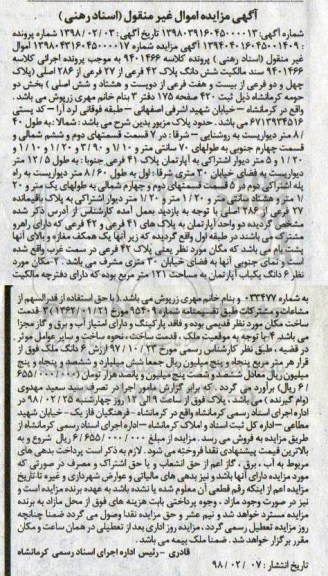 آگهی مزایده اموال غیر منقول (اسناد رهنی)
شماره آگهی: ۱۳۹۸۰۳۹۱۶۰۴۵۰۰۰۰۱۳ تاریخ آگهی: ۱۳۹۸/۰۲/۰۳ شماره پرونده
: ۱۳۹۴۰۴۰۱۶۰۴۵۰۰۱۴۰۹ آگهی مزایده شماره ۱۳۹۸۰۴۳۱۶۰۴۵۰۰۰۰۱۷ اموال
غیر منقول (اسناد رهنی) پرونده کلاسه ۹۴۰۱۴۶۶ به موجب پرونده اجرائی کلاسه
۹۴۰۱۴۶۶ سند مالکیت شش دانگ پلاک ۴۲ فرعی از ۲۷ فرعی از ۲۸۶ اصلی (پلاک
چهل و دو فرعی از بیست و هفت فرعی از دویست و هشتاد و شش اصلی) بخش دو
حومه کرمانشاه ذیل ثبت ۴۲۰ صفحه ۱۷۵ دفتر ۳ بنام خانم مهری زرپوش می باشد.
واقع در کرمانشاه - خیابان شهید اشرفی اصفهانی - طبقه فوقانی لرد آرا - کد پستی
۶۷۱۳۹۳۴۵۱۶ می باشد. حدود پلاک مزبور بدین شرح می باشد: شمالا: به طول ۴۰
/ ۸ متر دیواریست به روشنایی - شرقا: در ۷ قسمت قسمتهای دوم و ششم شمالی و
قسمت چهارم جنوبی به طولهای ۷۰ سانتی متر و ۱/۱۰ و ۳/۹۰ و ۱/۲۰ و ۱/۱۰ و
۱/۲۰ و ۵ متر دیوار اشتراکی به آپارتمان پلاک ۴۱ فرعی جنوبا: به طول ۱۲/۵ متر
دیواریست به فضای خیابان ۳۰ متری شرقا: اول به طول ۸/۶۰ متر دیواریست به راه
پله اشتراکی دوم در ۵ قسمت قسمتهای دوم و چهارم شمالی به طولهای یک متر و ۲۰
/۱ متر و هشتاد سانتی متر و ۱/۲۰ متر و ۱/۲۰ متر دیوار اشتراکی به پلاک باقیمانده
۲۷ فرعی از ۲۸۶ اصلی با توجه به بازدید بعمل آمده کارشناسی از آدرس ذکر شده
مشخص گردیده دو واحد آپارتمان به پلاک های ۴۱ فرعی و ۴۲ فرعی که دارای راهرو
مشترک می باشند در طبقه اول واقع گردیده که زیر آنها یک همکف مغازه و بالای آنها
پشت بام می باشد که مکان مورد نظر یعنی پلاک ۴۲ فرعی در قسمت غرب واقع شده
و نمای جنوبی آنها به فضای خیابان ۳۰ متری مشرف می باشد. ۲-مکان مورد
نظر ۶ دانگ یکباب آپارتمان به مساحت ۱۲۱ متر مربع بوده که دارای دفترچه مالکیت
به شماره ۰۳۳۴۷۷ و بنام خانم مهری زرپوش می باشد.( با حق استفاده از قدرالسهم از
مشاعات و مشترکات طبق تقسیمنامه شماره ۹۵۴۰۹ مورخ ۱۳۶۲/۰۱/۲۱) ۳- قدمت
ساخت مکان مورد نظر قدیمی بوده و فاقد پارکینگ و دارای امتیاز آب و برق و گاز مجزا
می باشد ۴ -با توجه به موقعیت ملک ، قدمت ساخت، نحوه ساخت و سایر عوامل موثر
در قضیه ، طبق نظر کارشناس رسمی مورخ ۹۷/۱۰/۲۳ ارزش ۶ دانگ ملک فوق از
قرار هر متر مربع پنجاه و پنج میلیون ریال جمعا شش میلیارد و ششصد و پنجاه و پنج
میلیون ریال معادل ششصد و شصت و پنج میلیون و پانصد هزار تومان (۰۰۰ / ۰۰۰ / ۶۵۵
/ ۶ ریال) برآورد می گردد . که برابر گزارش مامور اجرا در تصرف سید سعید مهدوی
(وام گیرنده ) می باشد، پلاک فوق از ساعت ۹ الی ۱۲ روز چهارشنبه ۹۸/۰۲/۲۵ در
اداره اجرای اسناد رسمی کرمانشاه واقع در کرمانشاه - فرهنگیان فاز یک- خیابان شهید
مطاعی -اداره کل ثبت اسناد و املاک کرمانشاه -اداره اجرای اسناد رسمی کرمانشاه از
طریق مزایده به فروش می رسد. مزایده از مبلغ ۶/۶۵۵/۰۰۰/۰۰۰ ریال شروع و به
بالاترین قیمت پیشنهادی نقدا فروخته می شود. لازم به ذکر است پرداخت بدهی های
مربوط به آب ، برق ، گاز اعم از حق انشعاب و یا حق اشتراک و مصرف در صورتی که
مورد مزایده دارای آنها باشد و نیز بدهی های مالیاتی و عوارض شهرداری و غیره تا تاریخ
مزایده اعم از اینکه رقم قطعی آن معلوم شده یا نشده باشد به عهده برنده مزایده است و
نیز در صورت وجود مازاد ، وجوه پرداختی بابت هزینه های فوق از محل مازاد به برنده
مزایده مسترد خواهد شد و نیم عشر و حق مزایده نقدا وصول می گردد ضمنا چنانچه
روز مزایده تعطیل رسمی گردد، مزایده روز اداری بعد از تعطیلی در همان ساعت و مکان
مقرر برگزار خواهد شد. ضمنا ملک بیمه می باشد.
قادری -رئیس اداره اجرای اسناد رسمی کرمانشاه
تاریخ انتشار : ۰۷ / ۰۲ / ۹۸